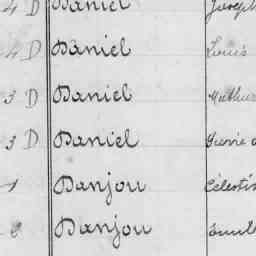 4 D Daniel Joseph
4 D Daniel Louis
3 D Daniel Mathur
3 D Daniel Pierre
1 Danjou Célestin
2 Danjou